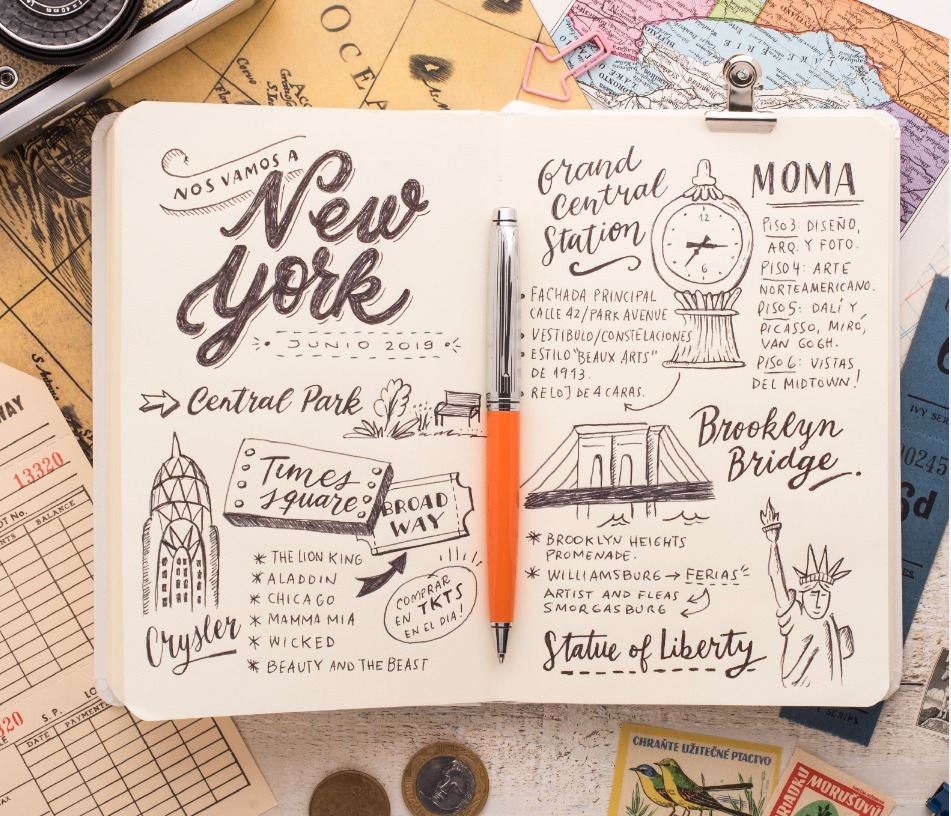 NOS VAMOS A
New
York
JUNIO 2019
Central Park
Times
Square
BROAD
WAY
* THE LION KING
* ALADDIN
* CHICAGO
* MAMMA MIA
* WICKED
* BEAUTY AND THE BEAST
COMPRAR
EN TKTS
EN EL DIA!
Crysler
Grand
Central
Station
12
6
• FACHADA PRINCIPAL
CALLE 42/PARK AVENUE
• VESTIBULO/CONSTELACIONES
• ESTILO "BEAUX ARTS"
DE 1913.
• RELOJ DE 4 CARAS.
MOMA
PISO 3: DISEÑO,
ARQ. Y FOTO.
PISO 4: ARTE
NORTEAMERICANO.
PISO 5: DALÍ Y
PICASSO, MIRÓ,
VAN GOGH.
PISO 6: VISTAS
DEL MIDTOWN!
Brooklyn
Bridge.
* BROOKLYN HEIGHTS
PROMENADE.
* WILLIAMSBURG → FERIAS
ARTIST AND FLEAS
SMORGASBURG
Statue of Liberty
OCEA
LAKE ERIE
13320
BALANCE
S.P.
DATE
CHRAŇTE UŽITEČNÉ PTACTVO
MORUŠOVÝ